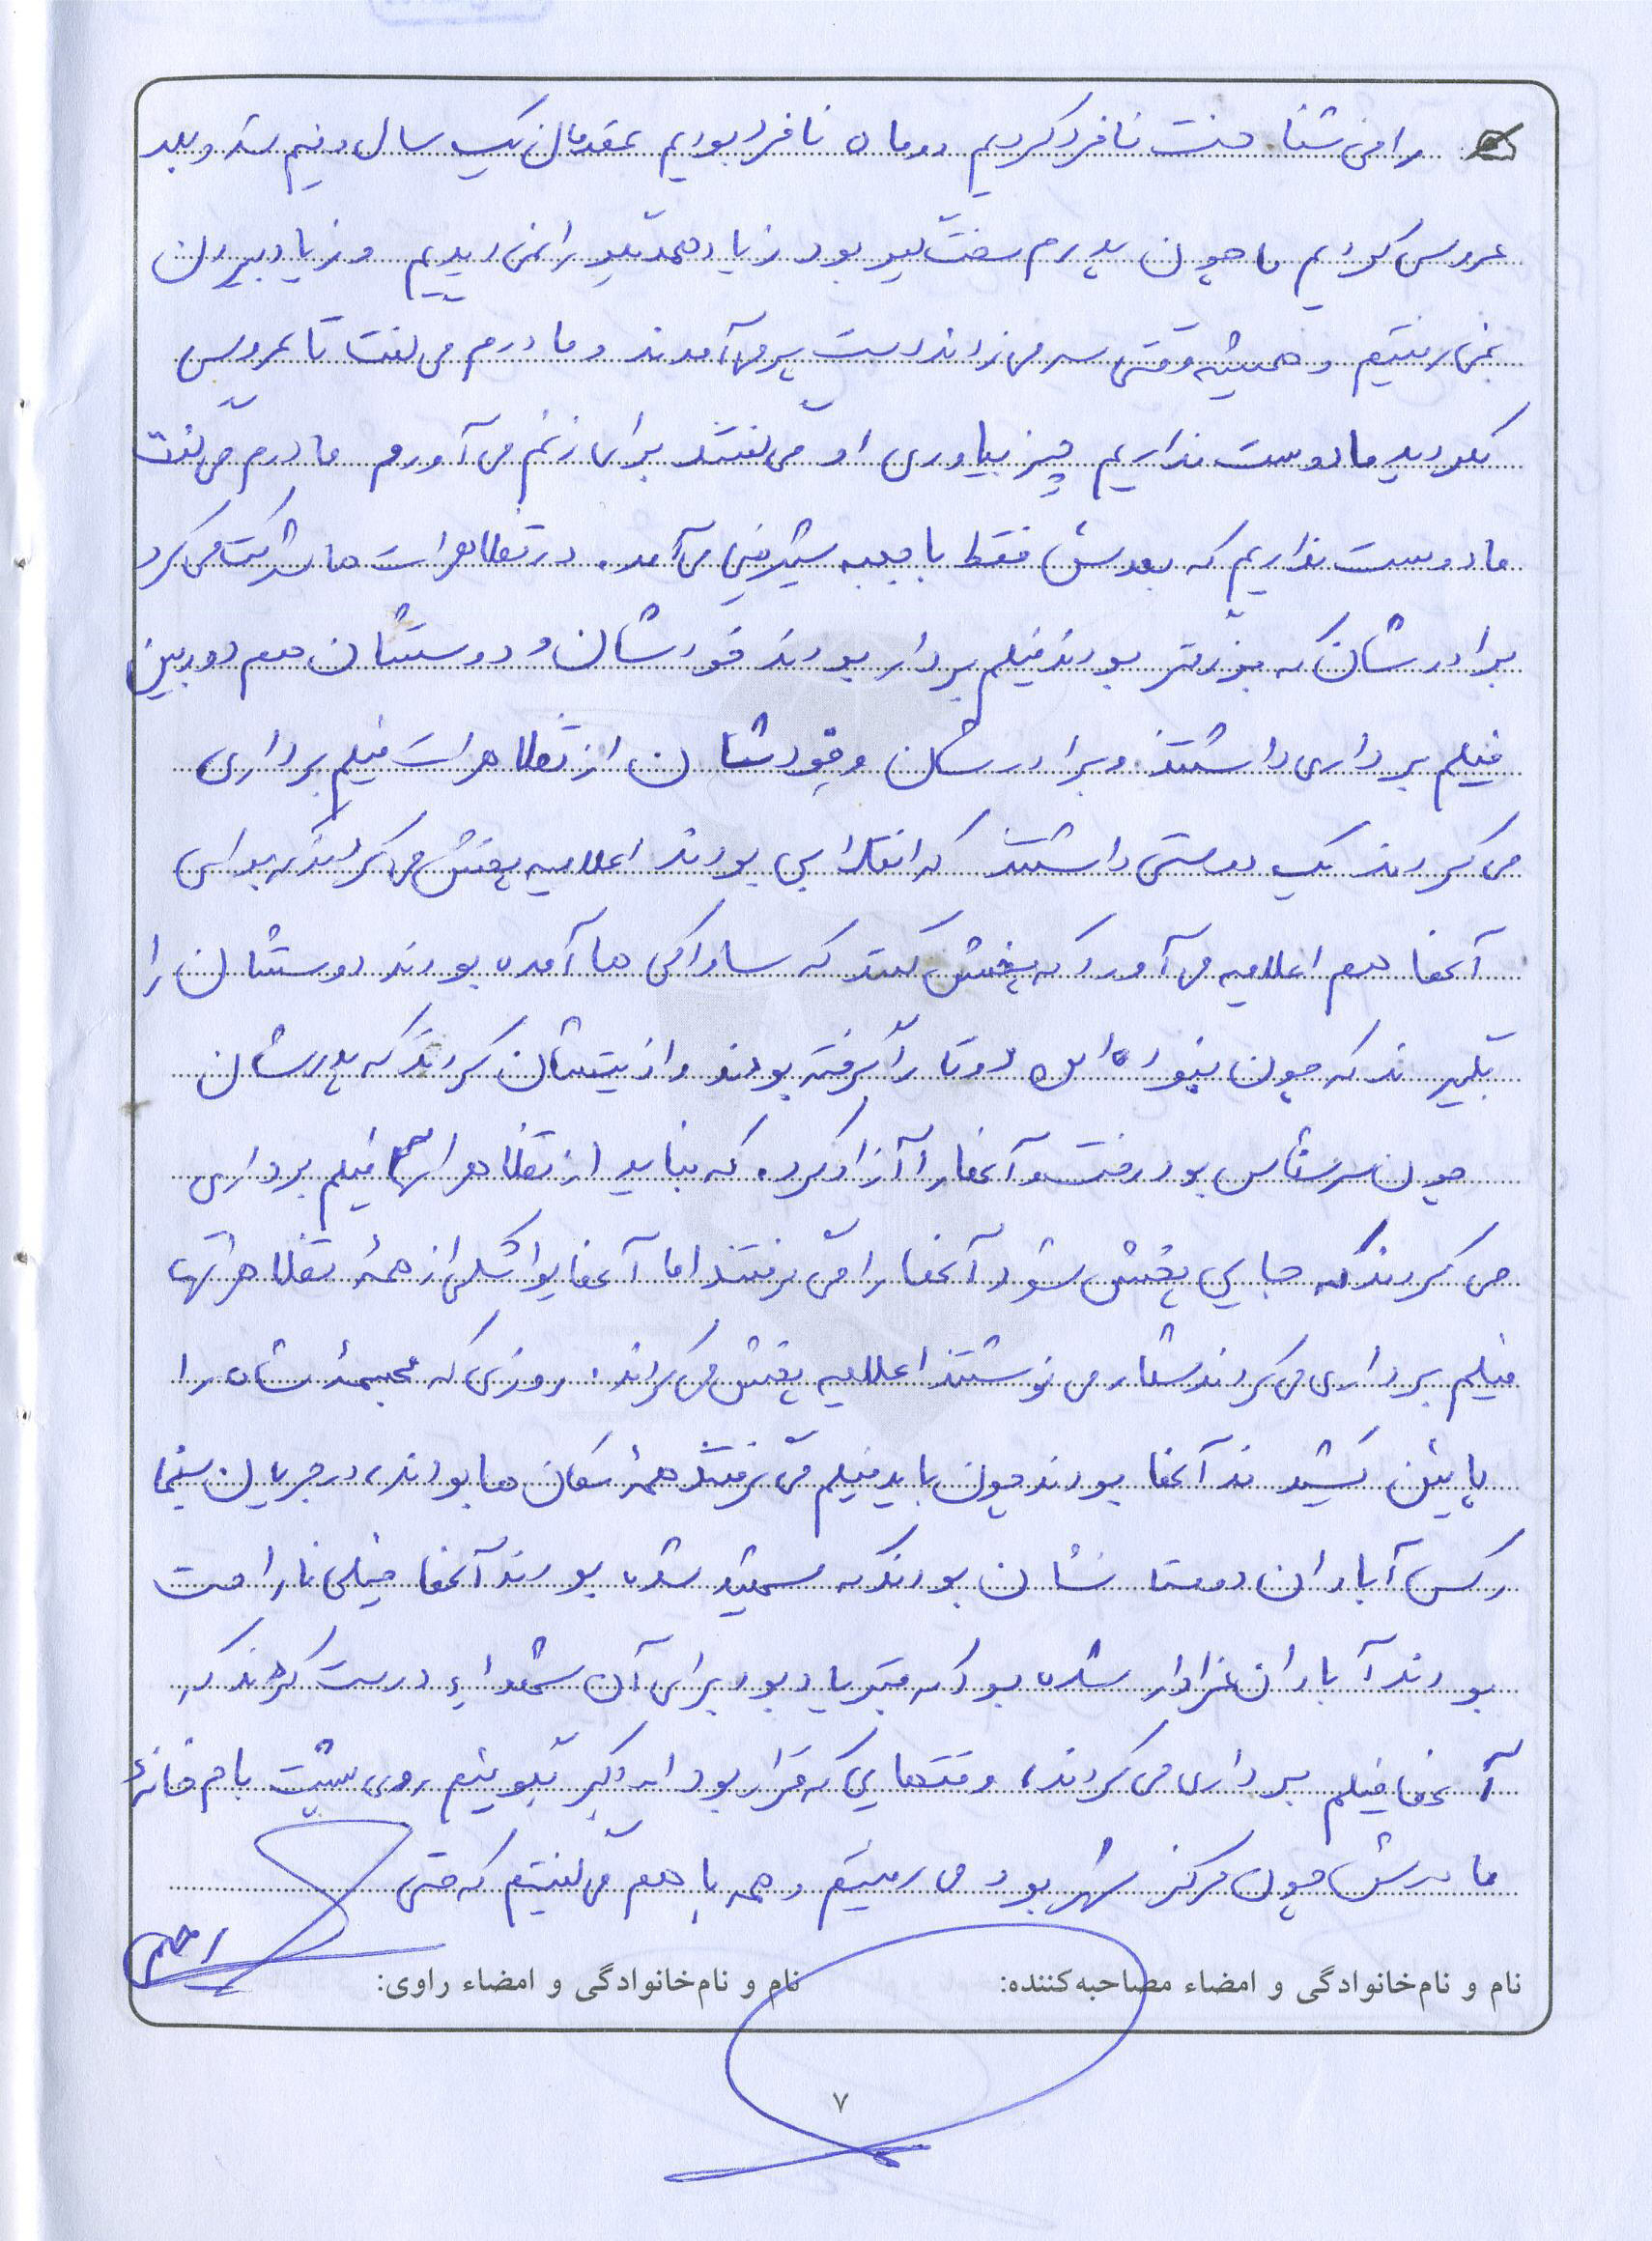 را می شناخت نامزد کردیم دو ماه نامزد بودیم عقدمان یک سال و نیم شد و بعد
عروسی کردیم ما چون پدرم سخت گیر بود زیاد همدیگر را نمی دیدیم و زیاد بیرون
نمی رفتیم و همیشه وقتی سر می زدند دست پر می آمدند و مادرم می گفت تا عروسی
نکردید ما دوست نداریم چیز بیاوری او می گفتند برای زنم می آورم مادرم می گفت
ما دوست نداریم که بعدش فقط با جعبه شیرینی می آمد. در تظاهرات ها شرکت می کرد
برادرشان که بزرگتر بودند فیلم بردار بودند خودشان و دوستشان هم دوربین
فیلم برداری داشتند. و برادرشان و خودشان از تظاهرات فیلم برداری
می کردند یک دوستی داشتند که انقلابی بودند اعلامیه پخش می کردند که برای
آنها هم اعلامیه می آورد که پخش کنند که ساواکی ها آمده بودند دوستشان را
بگیرند که چون نبوده این دوتا را گرفته بودند و اذیتشان کردند که پدرشان
چون سرشناس بود رفت و آنها را آزاد کرد. که نباید از تظاهراتها فیلم برداری
می کردند که جایی پخش شود آنها را می گرفتند اما آنها یواشکی از همۀ تظاهراتها
فیلم برداری می کردند شعار می نوشتند اعلامیه پخش می کردند. روزی که مجسمۀ شاه را
پایین کشیدند آنها بودند چون باید فیلم می گرفتند همۀ مکان ها بودند، در جریان سینما
رکس آبادان دوستانشان بودند که شهید شده بودند آنها خیلی ناراحت
بودند آبادان عزادار شده بود که قبر یاد بود برای آن شهداء درست کردند که
آنها فیلم برداری می کردند، وقتهایی که قرار بود الله اکبر بگوییم روی پشت بام خانۀ
مادرش چون مرکز شهر بود می رفتیم و همه با هم می گفتیم که حتی
نام و نام‌خانوادگی و امضاء مصاحبه‌کننده: نام و نام‌خانوادگی و امضاء راوی:
۷